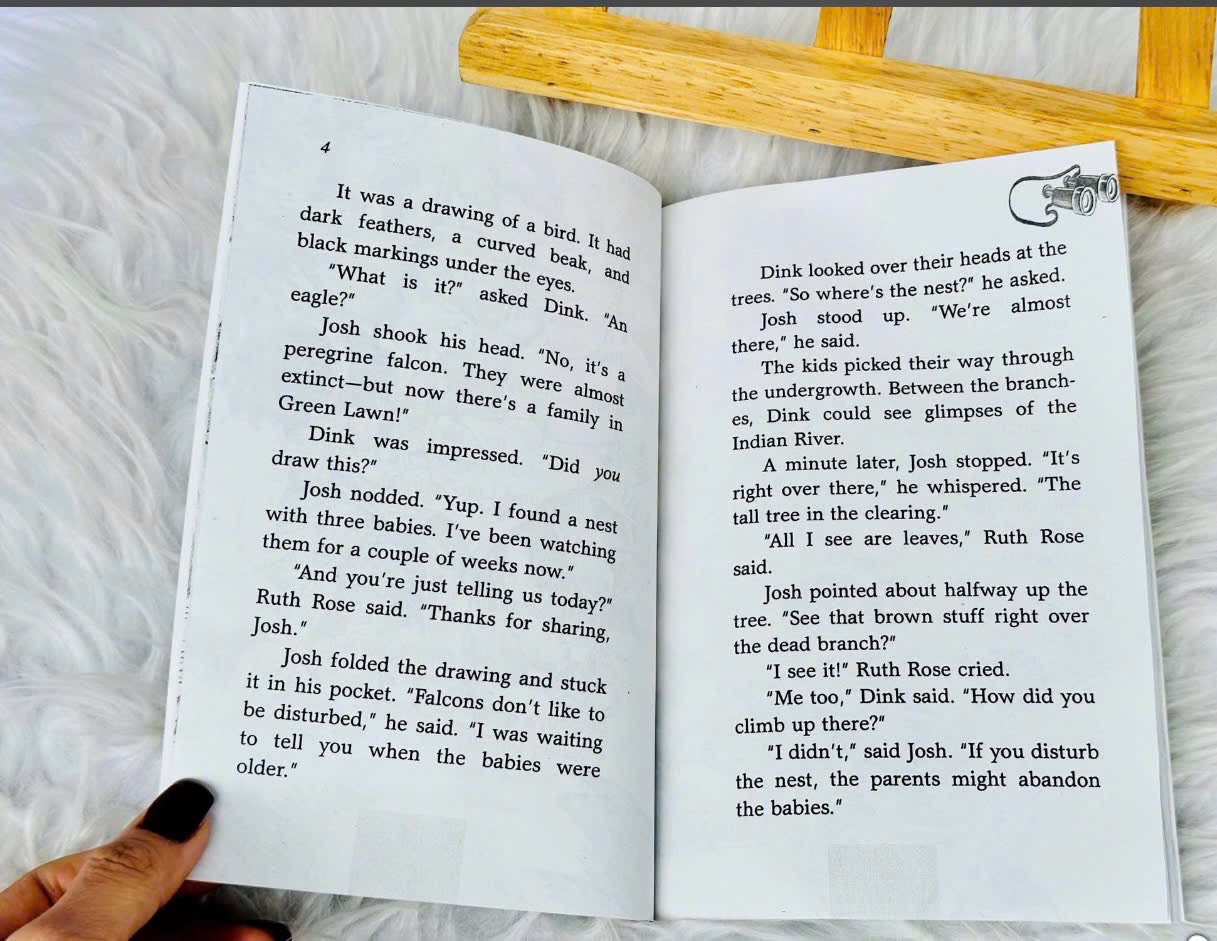 4
It was a drawing of a bird. It had
dark feathers, a curved beak, and
black markings under the eyes.
"What is it?" asked Dink. "An
eagle?"
Josh shook his head. "No, it's a
peregrine falcon. They were almost
extinct—but now there's a family in
Green Lawn!"
Dink was impressed. "Did you
draw this?"
Josh nodded. "Yup. I found a nest
with three babies. I've been watching
them for a couple of weeks now."
"And you're just telling us today?"
Ruth Rose said. "Thanks for sharing,
Josh."
Josh folded the drawing and stuck
it in his pocket. "Falcons don't like to
be disturbed," he said. "I was waiting
to tell you when the babies were
older."
Dink looked over their heads at the
trees. "So where's the nest?" he asked.
Josh stood up. "We're almost
there," he said.
The kids picked their way through
the undergrowth. Between the branch-
es, Dink could see glimpses of the
Indian River.
A minute later, Josh stopped. "It's
right over there," he whispered. "The
tall tree in the clearing."
"All I see are leaves," Ruth Rose
said.
Josh pointed about halfway up the
tree. "See that brown stuff right over
the dead branch?"
"I see it!" Ruth Rose cried.
"Me too," Dink said. "How did you
climb up there?"
"I didn't," said Josh. "If you disturb
the nest, the parents might abandon
the babies."